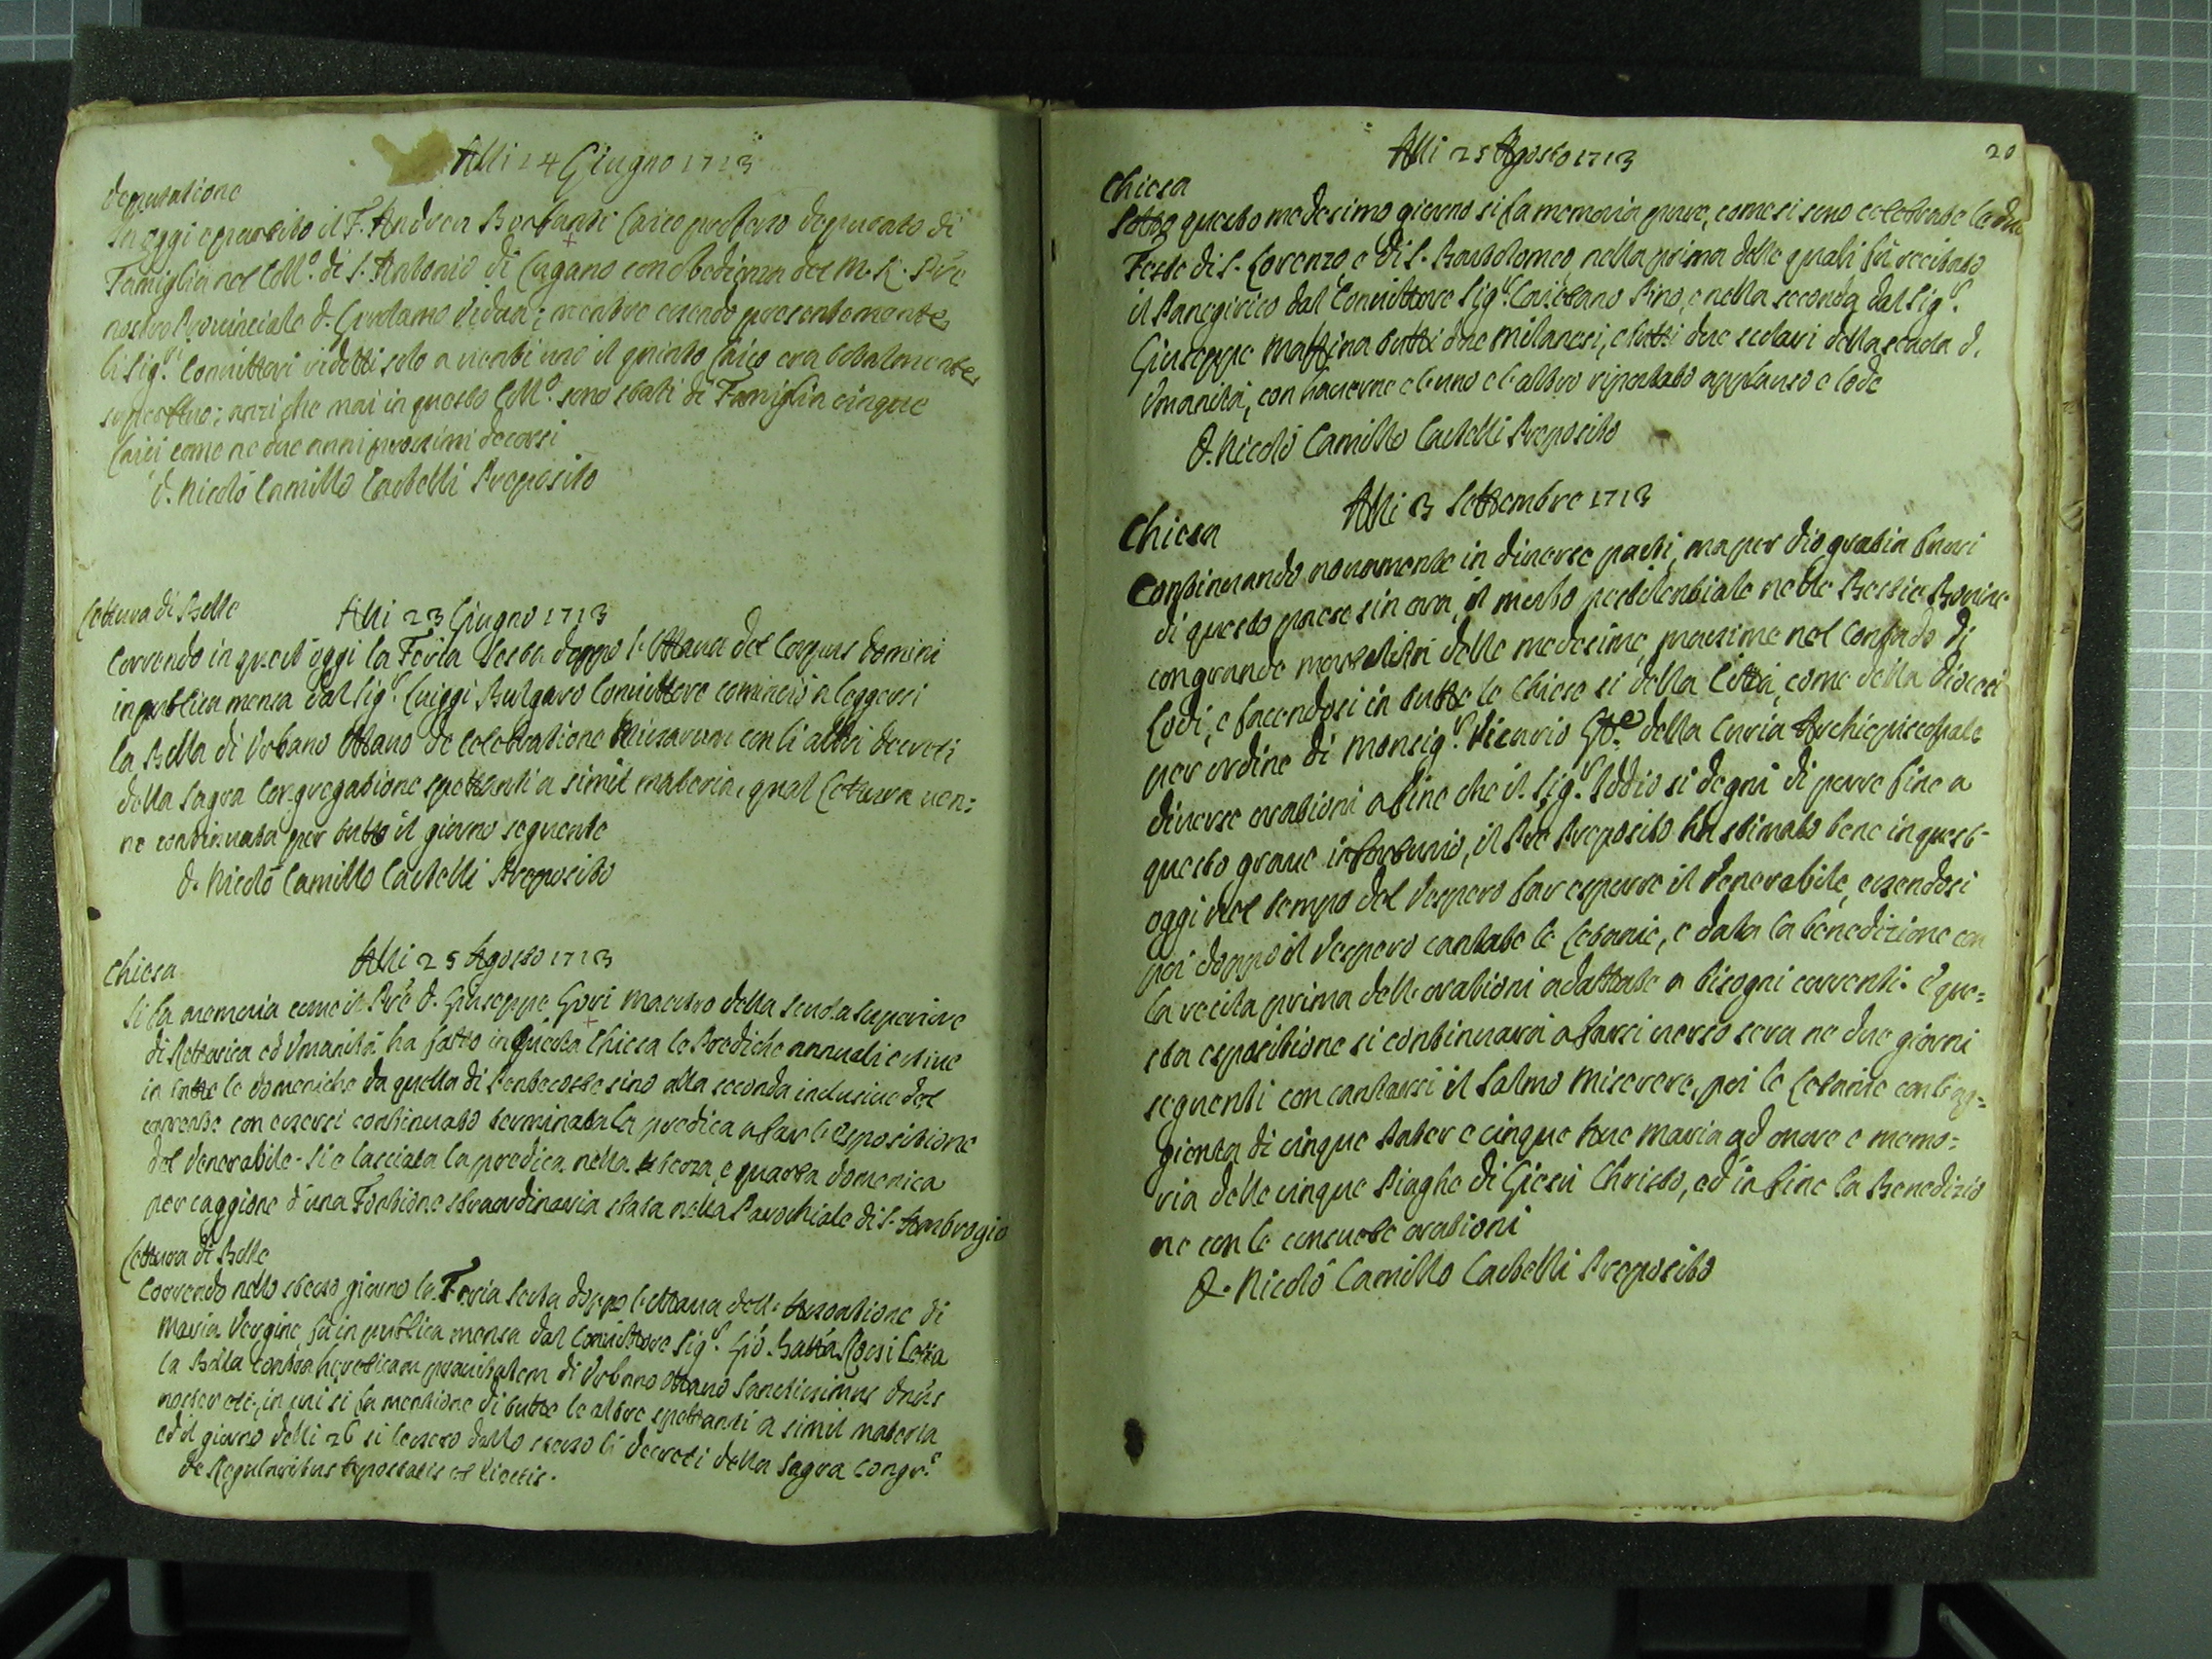 Alli 14 Giugno 1713
Deputatione
In oggi è partito il F. Andrea Borsante laico professo deputato di
Famiglia nel Coll.º di S. Antonio di Lugano con obedienza del M. R. Pre
nostro Provinciale D. Girolamo Vidua; mentre essendo presentemente
li Sig.ri Convittori ridotti solo a vent'uno il quinto laico era totalmente
superfluo; anzi che mai in questo Coll.º sono stati di Famiglia cinque
laici come ne due anni prossimi decorsi
D. Nicolò Camillo Castelli Preposito
Lettura di Bolle
Alli 23 Giugno 1713
Correndo in quest'oggi la Feria Sesta doppo l'Ottava del Corpus Domini
in publica mensa dal Sig.r Luiggi Bulgaro Convittore cominciò a leggersi
la Bolla di Urbano Ottavo de Celebratione Missarum con li altri decreti
della Sagra Congregatione spettanti a simil materia, qual Lettura ven=
ne continuata per tutto il giorno seguente
D. Nicolò Camillo Castelli Preposito
Alli 25 Agosto 1713
Chiesa
Si fa memoria come il Pre D. Giuseppe Gori Maestro della scuola superiore
di Rettorica ed Umanità ha fatto in questa Chiesa le Prediche annuali estive
in tutte le domeniche da quella di Pentecoste sino alla seconda inclusive del
corrente con essersi continuato terminata la predica a far l'espositione
del Venerabile. Si è lasciata la predica nella terza, e quarta domenica
per caggione d'una Fontione straordinaria stata nella Parochiale di S. Ambrogio
Lettura di Bolle
Correndo nello stesso giorno la Feria sesta doppo l'ottava dell'Assontione di
Maria Vergine, fu in publica mensa dal Convittore Sig.r Gio. Batta Rossi letta
la Bolla contra hereticam pravitatem di Urbano Ottavo Sanctissimus Dnus
noster etc., in cui si fa mentione di tutte le altre spettanti a simil materia
ed il giorno delli 26 si lessero dallo stesso li decreti della Sagra Congr.e
de Regularibus Apostatis et Eiectis.
20
Alli 25 Agosto 1713
Chiesa
Sotto questo medesimo giorno si fa memoria pure, come si sono celebrate le due
Feste di S. Lorenzo e di S. Bartolomeo, nella prima delle quali fù recitato
il Panegirico dal Convittore Sig.r Gaietano Pino, e nella seconda dal Sig.r
Giuseppe Maffina tutti due Milanesi, e tutti due scolari della scuola d.
Umanità, con haverne e l'uno e l'altro riportato applauso e lode
D. Nicolò Camillo Castelli Preposito
Alli 3 Settembre 1713
Chiesa
Continuando novamente in diverse parti, ma per Dio gratia fuori
di questo paese sin ora, il morbo pestilentiale nelle Bestie Bovine
con grande mortalità delle medesime, massime nel Contado di
Lodi, e facendosi in tutte le Chiese sì della Città, come della diocesi
per ordine di Monsig.r Vicario G.le della Curia Archiepiscopale
diverse orationi a fine che il Sig.r Iddio si degni di porre fine a
questo grave infortunio, il Pre Preposito ha stimato bene in quest'
oggi nel tempo del Vespero far esporre il Venerabile, essendosi
poi doppo il Vespero cantate le Letanie, e data la benedizione con
la recita prima dell'orationi adattate a bisogni correnti. E que=
sta espositione si continuarà a farsi verso sera ne due giorni
seguenti con cantarsi il Salmo Miserere, poi le Letanie con l'ag=
gionta di cinque Pater e cinque Ave Maria ad onore e memo=
ria delle cinque Piaghe di Giesù Christo, ed in fine la Benedizio
ne con le consuete orationi
D. Nicolò Camillo Castelli Preposito